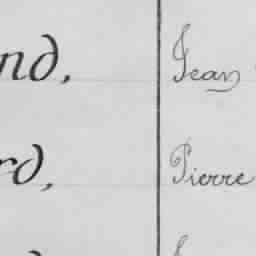 nd, Jean
rd, Pierre